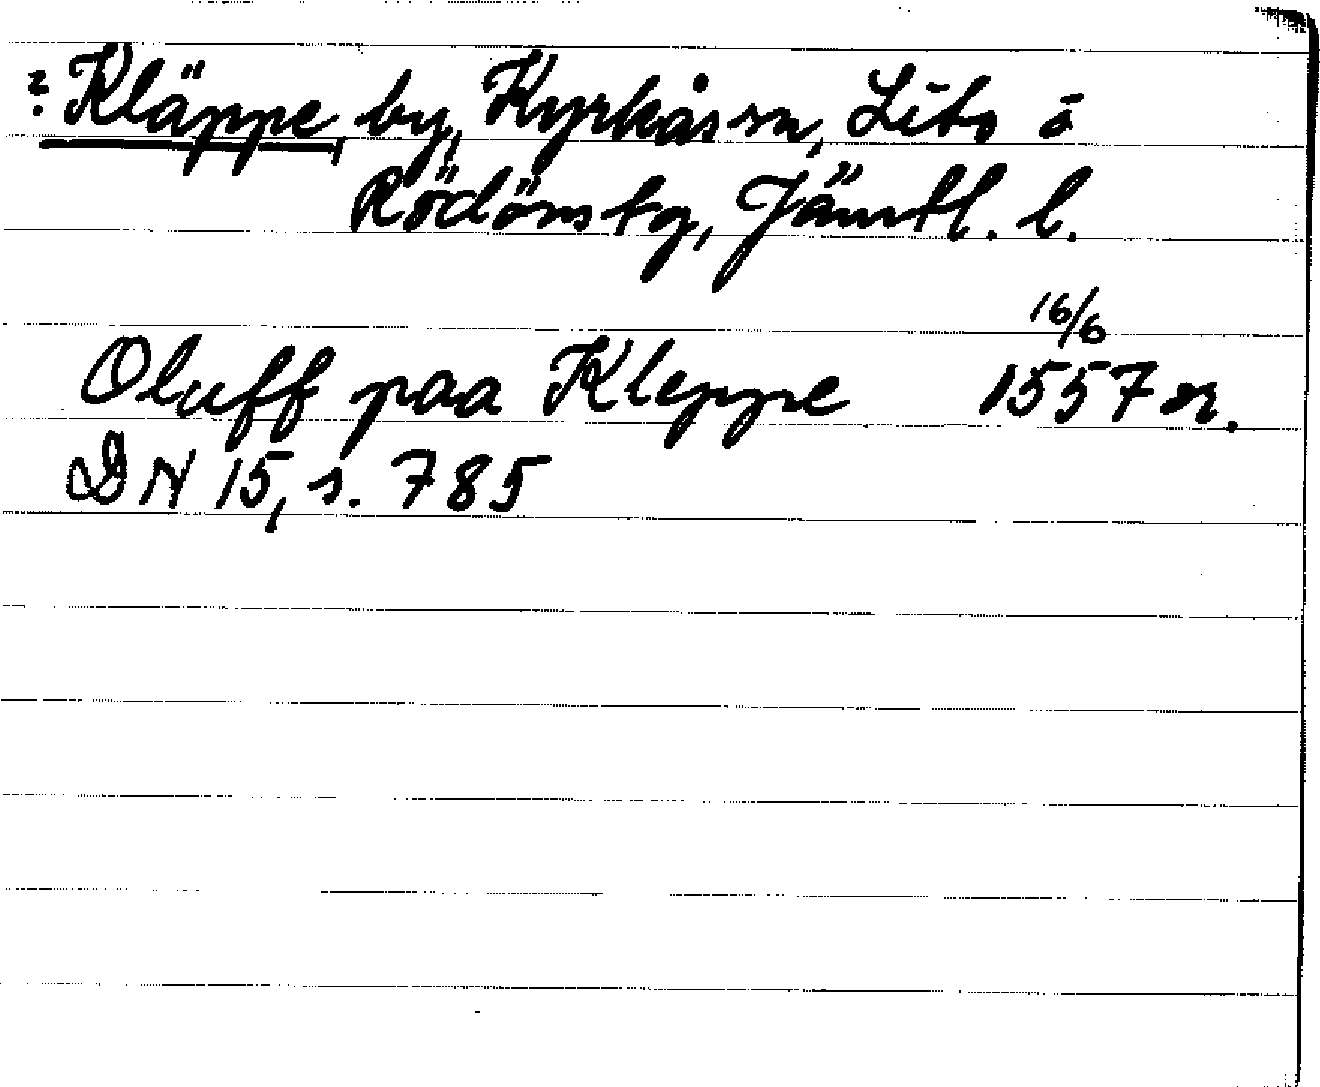 ? Kläppe, by, Kyrkås sn, Lits o
Rödöns tg, Jämtl. l.
16/6
Oluff paa Kleppe 1557 or.
DN 15, s. 785